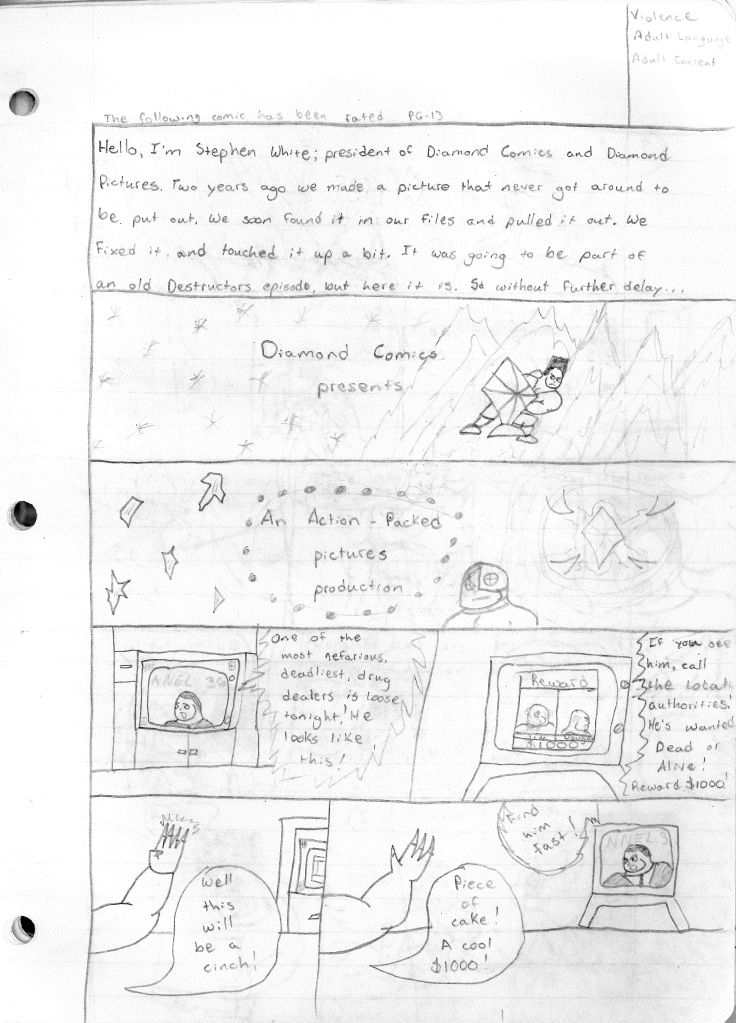 Violence
Adult Language
Adult Content
The following comic has been rated PG-13
Hello, I'm Stephen White; president of Diamond Comics and Diamond
Pictures. Two years ago we made a picture that never got around to
be put out. We soon found it in our files and pulled it out. We
fixed it, and touched it up a bit. It was going to be part of
an old Destructors episode, but here it is. So without further delay...
Diamond Comics
presents
An Action-Packed
pictures
production
NNEL 3
One of the
most nefarious,
deadliest, drug
dealers is loose
tonight! He
looks like
this!
Reward
$1000
If you see
him, call
the local
authorities!
He's wanted
Dead or
Alive!
Reward $1000!
Well
this
will
be a
cinch!
Find
him
fast!
NNEL 3
Piece
of
cake!
A cool
$1000!
1